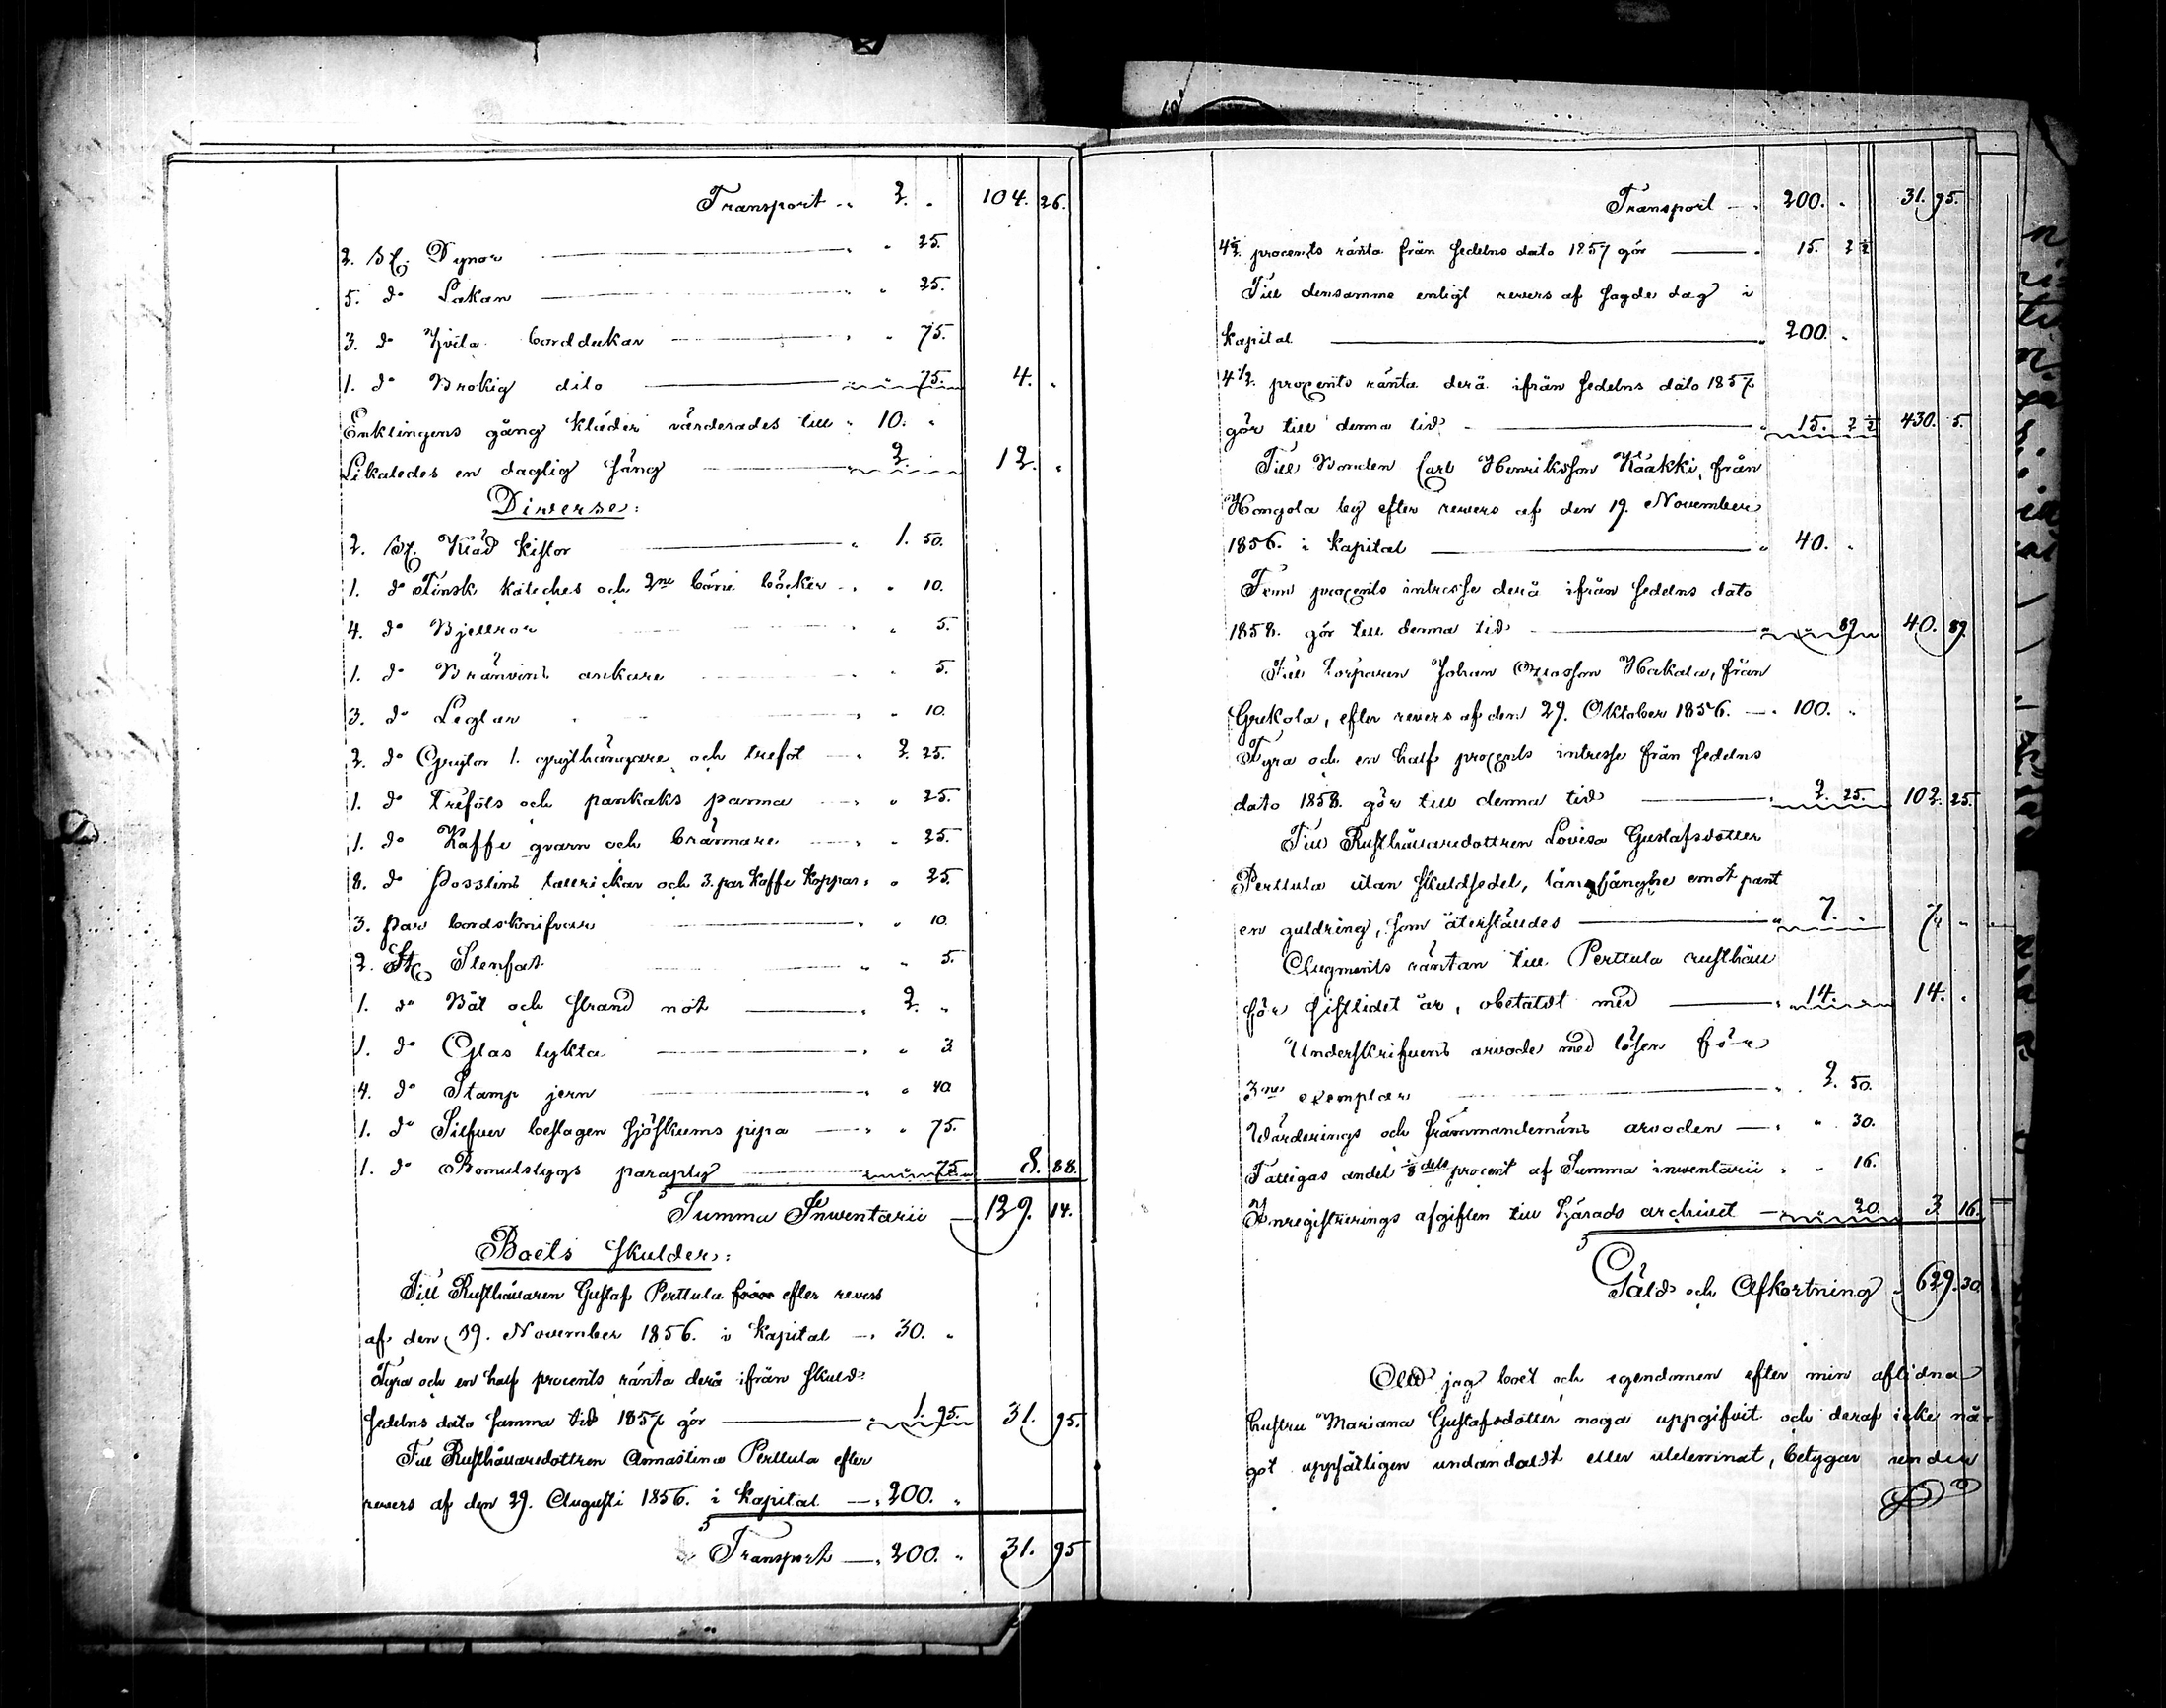 Transport „ 2. „ 104. 26.
2. st. Dynor „ „ 25.
5. do Lakan „ „ 25.
3. do Hvita borddukar „ „ 75.
1. do Brokig dito „ „ 75. 4. „
Enklingens gång kläder värderades till „ 10. „
Likaledes en daglig säng „ 2. „ 12. „
Diverse:
2. st. Kläd kistor „ 1. 50.
1. do Finsk kateches och 2ne böne böcker „ „ 10.
4. do Bjellror „ „ 5.
1. do Bränvins ankare „ „ 5.
3. do Leglar „ „ 10.
2. do Grytor 1. grythängare och trefot „ 2. 25.
1. do Trefots och pankaks panna „ „ 25.
1. do Kaffe qvarn och brännare „ „ 25.
8. do Posslins tallrickar och 3. par Kaffe koppar „ „ 25.
3. Par bordsknifvar „ „ 10.
2. St. Stenfat „ „ 5.
1. do Båt och strand not „ 2. „
1. do Glas lykta „ „ 3
4. do Stamp jern „ „ 40
1. do Silfver beslagen sjöskums pipa „ „ 75.
1. do Bomulstygs paraply „ „ 75. 8. 88.
Summa Inventarii 129. 14.
Boets skulder:
Till Rusthållaren Gustaf Perttula från efter revers
af den 19. November 1856. i Kapital „ 30. „
Fyra och en half procents ränta derå ifrån skuld
sedelns dato samma tid 1857 gör „ 1. 95. 31. 95.
Till Rusthållaredottren Annastina Perttula efter
revers af den 29. Augusti 1856. i Kapital „ 200. „
Transport „ 200. „ 31. 95
Transport „ 200. „ 31. 95.
4½ procents ränta från sedelns dato 1857 gör „ 15. 2½
Till densamme enligt revers af sagde dag i
kapital „ 200. „
4½. procents ränta derå ifrån sedelns dato 1857
gör till denna tid „ 15. 2½ 430. 5.
Till Bonden Carl Henriksson Kääkki, från
Hongola by efter revers af den 19. November
1856. i Kapital „ 40. „
Fem procents intresse derå ifrån sedelns dato
1858. gör till denna tid „ „ 89. 40. 89.
Till Torparen Johan Hakala, från
Grekola, efter revers af den 29. Oktober 1856. „ 100. „
Fyra och en half procents intresse från sedelns
dato 1858. gör till denna tid „ 2. 25. 102. 25.
Till Rusthållaredottren Lovisa Gustafsdotter
Perttula utan skuldsedel, emot pant
en guldring, som återställdes „ 7. „ 7. „
Augments räntan till Perttula rusthåll
för sistlidet år, obetaldt med „ 14. „ 14. „
Underskrifvens arvode med lösen för
3ne exemplar „ 2. 50.
Wärderings och främmandemäns arvoden „ „ 30.
Fattigas andel ⅛ dels procent af Summa inventarii „ „ 16.
Inregistrerings afgiften till Härads archivet „ „ 20. 3 16.
Gäld och Afkortning „ 629. 30.
Att jag boet och egendomen efter min aflidna
hustru Mariana Gustafsdotter noga uppgifvit och deraf icke nå-
got uppsåtligen undandoldt eller utelemnat, betygar under